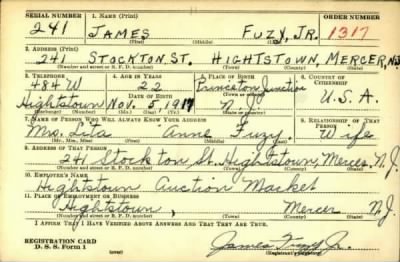 SERIAL NUMBER 1. NAME (Print) ORDER NUMBER
241 JAMES FUZY, JR. 1317
(First) (Middle) (Last)
2. ADDRESS (Print)
241 STOCKTON ST. HIGHTSTOWN, MERCER, N.J.
(Number and street or R. F. D. number) (Town) (County) (State)
3. TELEPHONE 4. AGE IN YEARS 5. PLACE OF BIRTH 6. COUNTRY OF CITIZENSHIP
484 W 22 Princeton Junction
DATE OF BIRTH (Town or county)
Hightstown Nov. 5, 1917 N.J. U.S.A.
(Exchange) (Number) (Mo.) (Day) (Yr.) (State or country)
7. NAME OF PERSON WHO WILL ALWAYS KNOW YOUR ADDRESS 8. RELATIONSHIP OF THAT PERSON
Mrs. Anne Fuzy. Wife
(Mr., Mrs., Miss) (First) (Middle) (Last)
9. ADDRESS OF THAT PERSON
241 Stockton St. Hightstown, Mercer N.J.
(Number and street or R. F. D. number) (Town) (County) (State)
10. EMPLOYER'S NAME
Hightstown Auction Market
11. PLACE OF EMPLOYMENT OR BUSINESS
Hightstown, Mercer N.J.
(Number and street or R. F. D. number) (Town) (County) (State)
I AFFIRM THAT I HAVE VERIFIED ABOVE ANSWERS AND THAT THEY ARE TRUE.
REGISTRATION CARD
D. S. S. Form 1 (over) James Fuzy Jr.
(Registrant's signature)